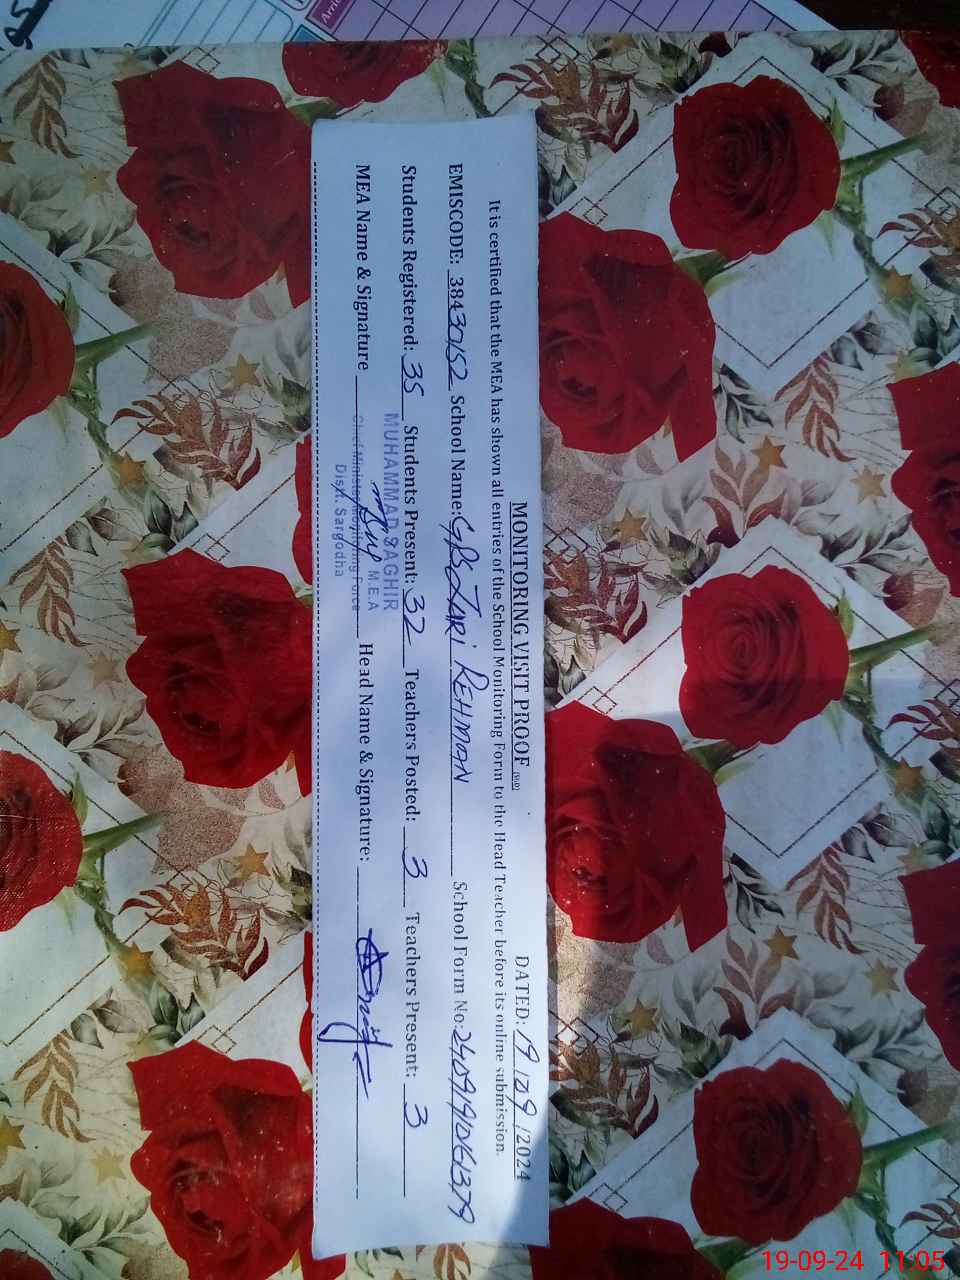 MONITORING VISIT PROOF DATED: 19/09/2024
It is certified that the MEA has shown all entries of the School Monitoring Form to the Head Teacher before its online submission.
EMISCODE: 38430152 School Name: REHMAN School Form No:
Students Registered: 35 Students Present: 32 Teachers Posted: 3 Teachers Present: 3
MUHAMMAD SAGHIR
M.E.A
MEA Name & Signature Head Name & Signature:
Chief Minister Monitoring Force
Distt. Sargodha
19-09-24 11:05